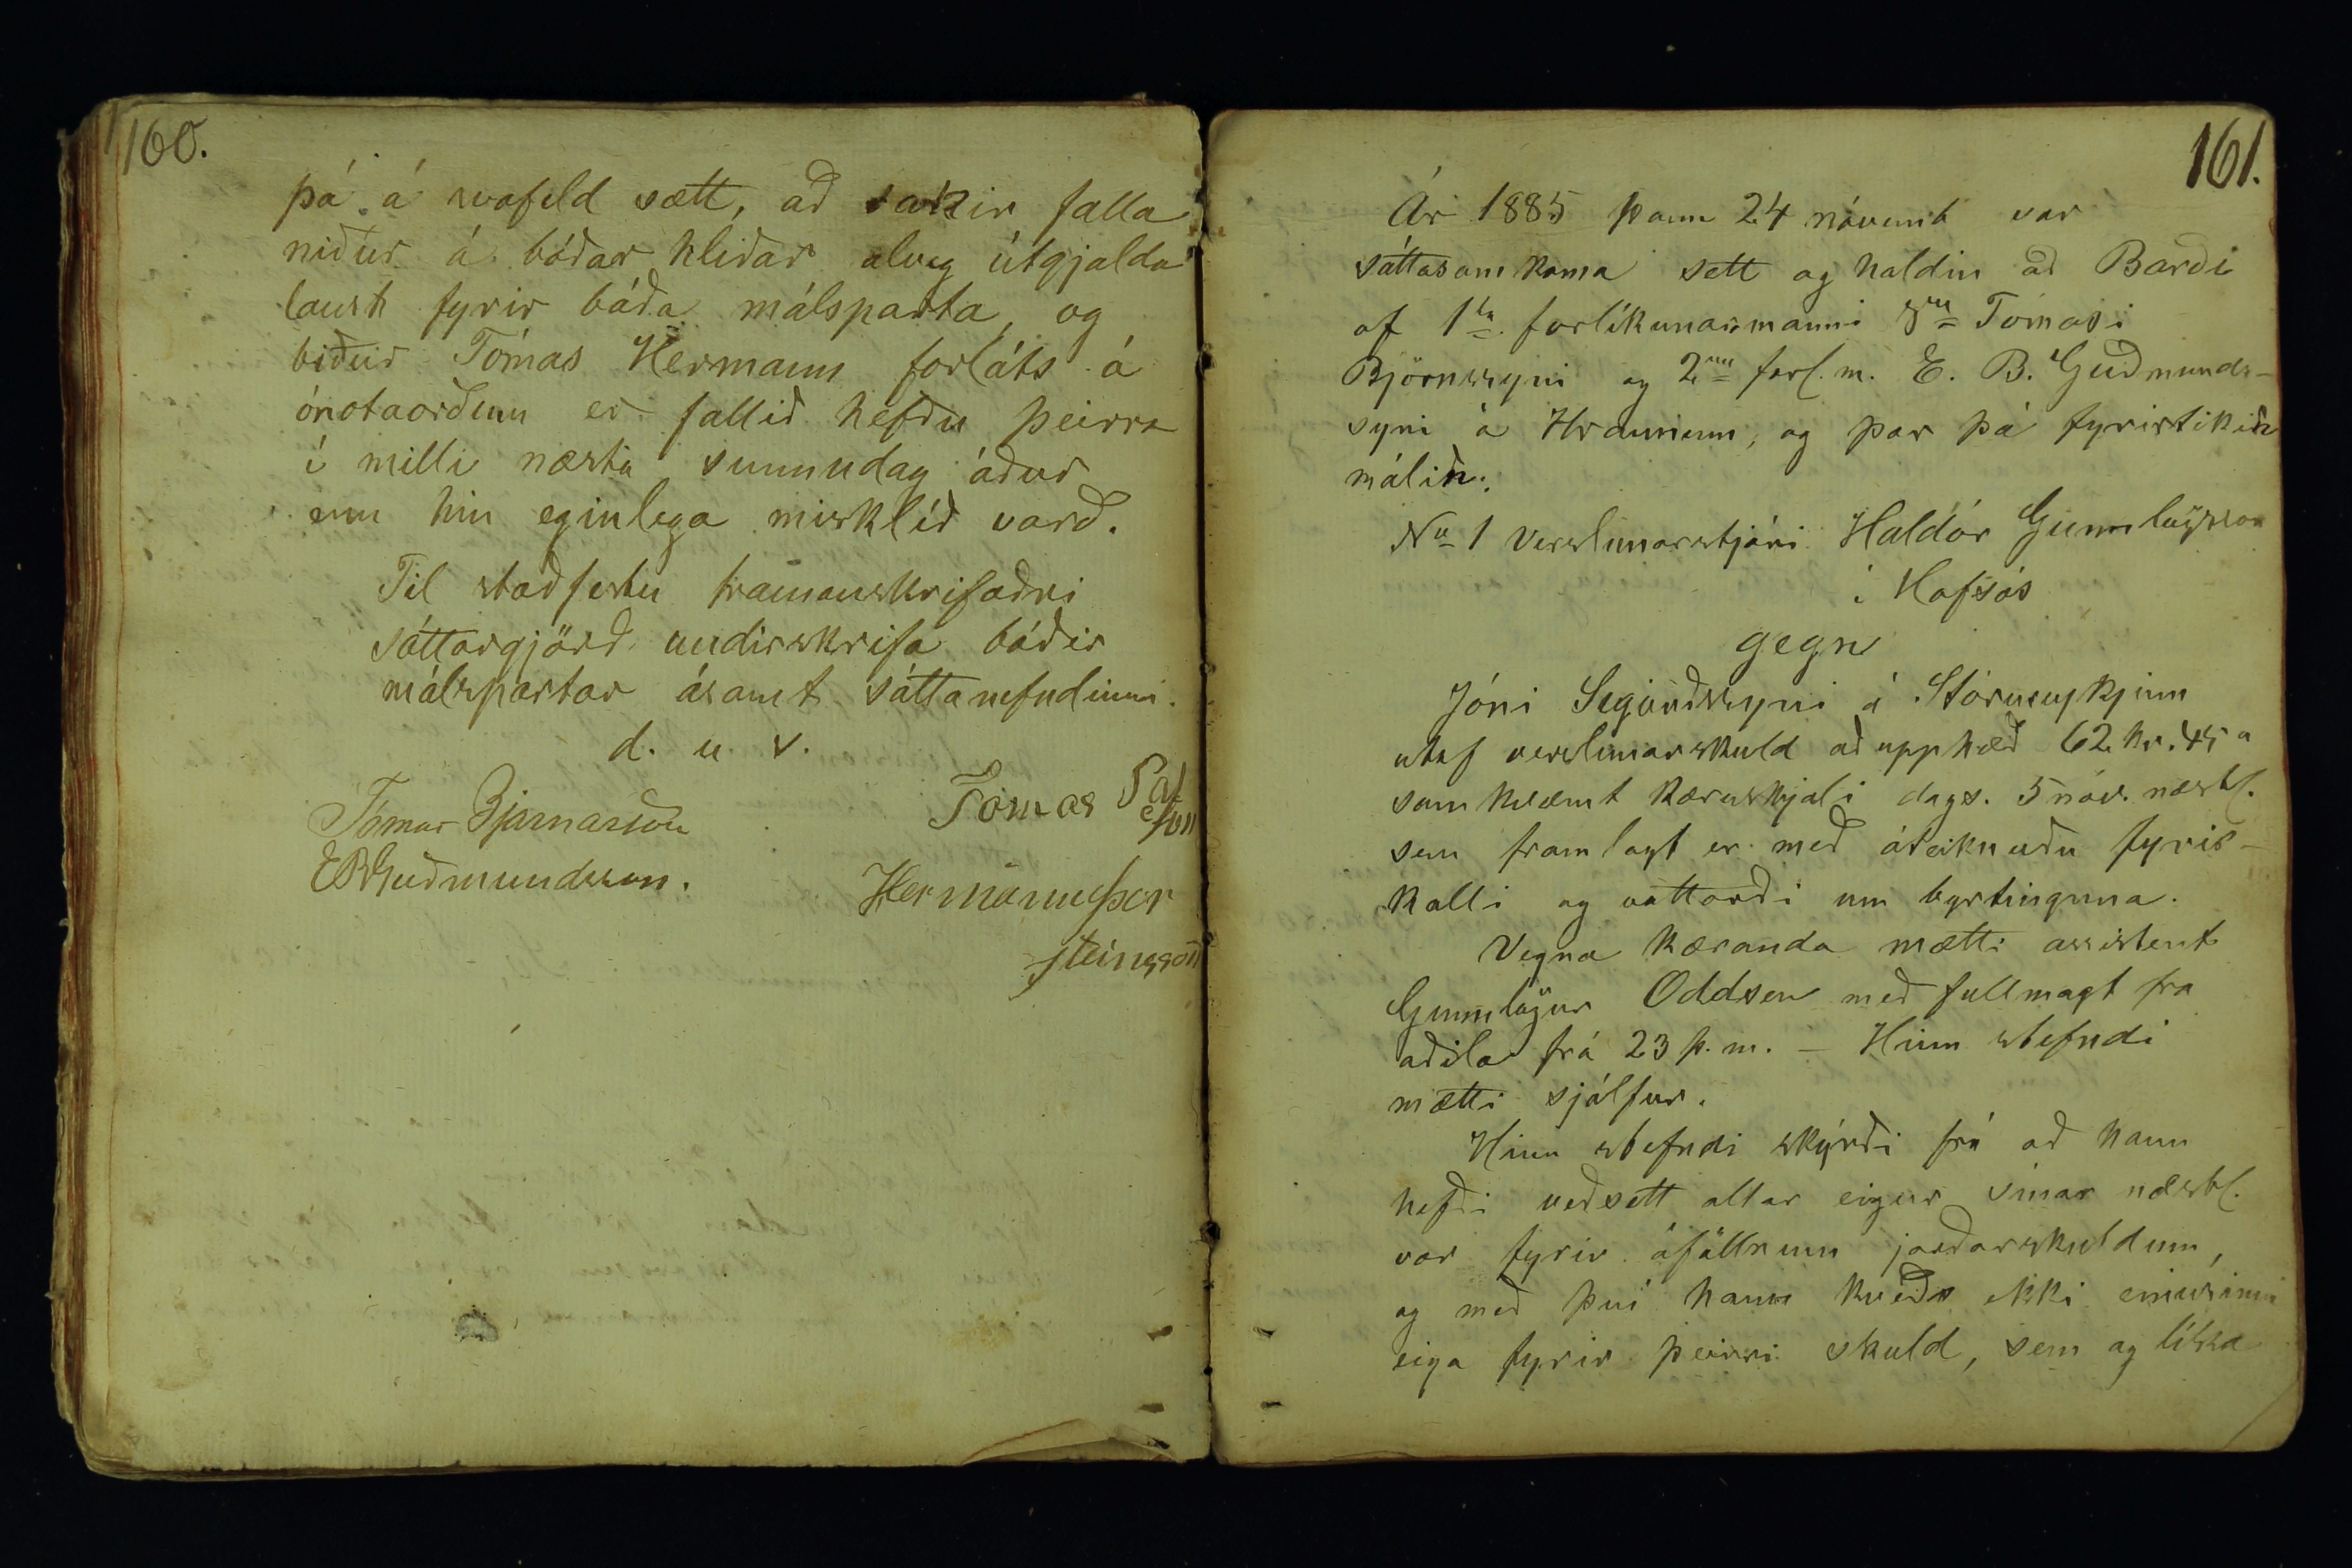 160.
þá á svofeld sætt, að sakir falla
niður á báðar hliðar alveg útgjalda
laust fyrir báða málsparta, og
biður Tómas Hermann forláts á
ónotaorðum er fallið hefðu þeirra
í milli næsta sunnudag áður
enn hin eginlega misklíð varð.
Til staðfestu framanskrifaðri
sáttargjörð undirskrifa báðir
málspartar ásamt sáttanefndinni.
d. u. s.
Tómas Bjarnarson
EBGuðmundsson.
Tomas
Hermann Þor
steinsson
161.
Ár 1885 þann 24 nóvemb var
sáttasamkoma sett og haldin að Barði
af 1ta forlíkunarmanni Sra Tómasi
Björnssyni og 2um forl. m. E. B. Guðmunds-
syni á Hraunum, og þar þá fyrirtekin
málin:
No 1 Verslunarstjóri Haldór Gunnlaugsson
í Hofsós
gegn
Jóni Sigurðssyni á Stórureykjum
utaf verslunarskuld að upphæð 62 kr. 45 a
samkvæmt kæruskjali dags. 5 nóv. næstl.
sem framlagt er með áteiknuðu fyrir-
kalli og vottorði um byrtinguna.
Vegna kæranda mætti assistent
Gunnlögur Oddsen með fullmagt fra
aðila frá 23 þ. m. – Hinn stefndi
mætti sjálfur.
Hinn stefndi skýrði frá að hann
hefði veðsett allar eigur sínar næstl.
vor fyrir áföllnum jarðarskuldum,
og með því hann kveðst ekki einusinni
eiga fyrir þeirri skuld, sem og líka